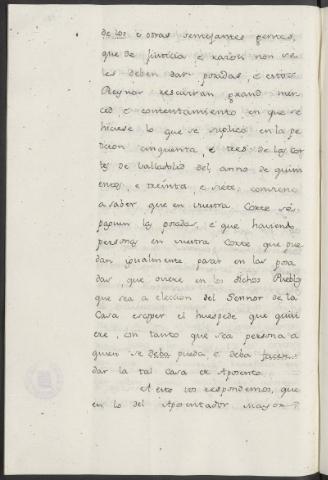 de los e otras semejantes gentes,
que de justicia e razon non se
les deben dar posadas, e estos
Reynos rescivirán grand mer-
ced e contentamiento en que se
hiciese lo que se suplicó en la pe
ticion cinquenta, e tres de las Cor
tes de Valladolid del anno de quini
entos, e treinta, e siete, conviene
a saber que en vuestra Corte se
paguen las posadas, e que haviend
personas en vuestra Corte que pue
dan igualmente posar en las posa
das, que oviere en los dichos Pueblos
que sea a eleccion del Sennor de la
Casa escoger el huesped que quisi
ere, con tanto que sea persona a
quien se deba pueda e deba
dar la tal Casa de Aposento.
A esto vos respondemos, que
en lo del Aposentador Mayor